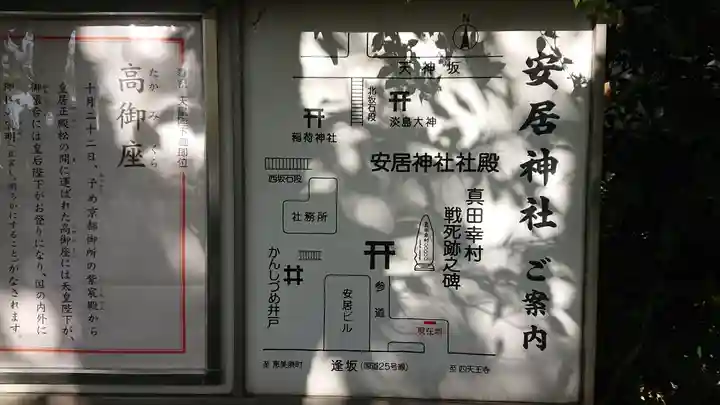 安居神社 ご案内
N
天神坂
北坂石段
稲荷神社
淡島大神
安居神社社殿
西坂石段
社務所
真田幸村
戦死跡之碑
かんしづめ井戸
安居ビル
参道
現在地
至 恵美須町
逢坂(国道25号線)
至 四天王寺
高御座
たかみくら
十月二十二日、予め京都御所の紫宸殿から
皇居正殿松の間に運ばれた高御座には天皇陛下が、
御帳台には皇后陛下がお登りになり、国の内外に
することがなされます。